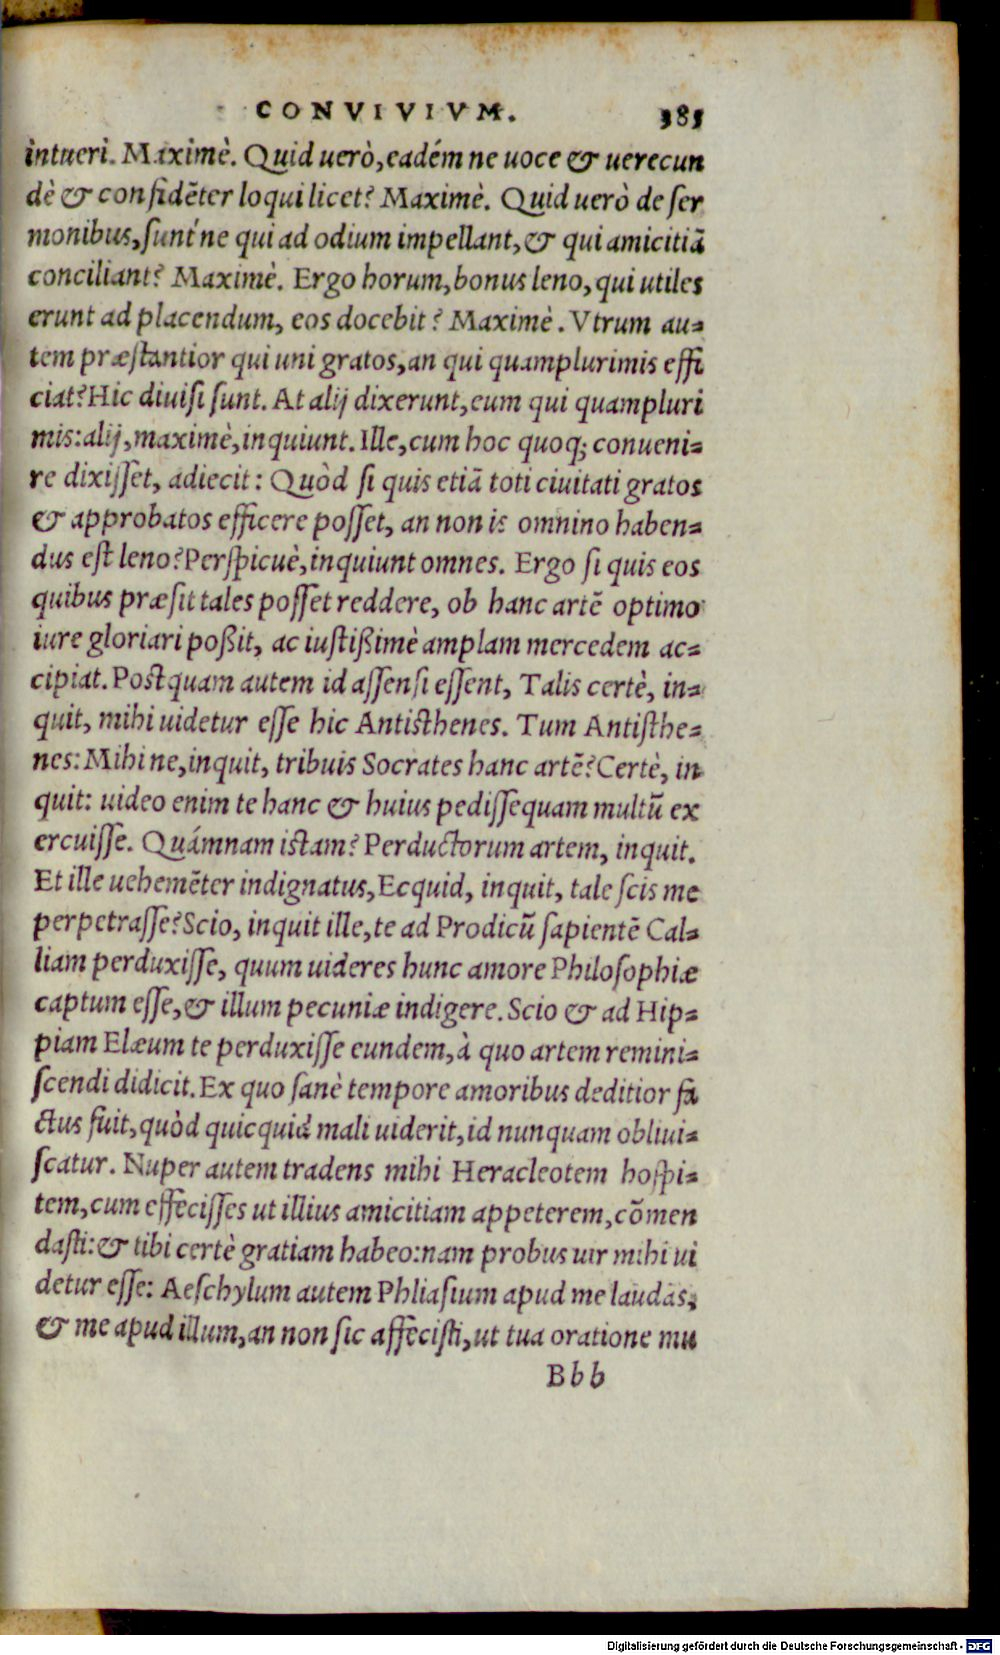 CONVIVIVM. 385
intueri. Maximè. Quid uerò, eadém ne uoce & uerecun
dè & confidẽter loqui licet? Maximè. Quid uerò de ser
monibus, sunt'ne qui ad odium impellant, & qui amicitiã
conciliant? Maximè. Ergo horum, bonus leno, qui utiles
erunt ad placendum, eos docebit? Maximè. Vtrum au-
tem præstantior qui uni gratos, an qui quamplurimis effi
ciat? Hic diuisi sunt. At alij dixerunt, eum qui quampluri
mis: alij, maximè, inquiunt. Ille, cum hoc quoq; conueni-
re dixisset, adiecit: Quòd si quis etiã toti ciuitati gratos
& approbatos efficere posset, an non is omnino haben-
dus est leno? Perspicuè, inquiunt omnes. Ergo si quis eos
quibus præsit tales posset reddere, ob hanc artẽ optimo
iure gloriari poßit, ac iustißimè amplam mercedem ac-
cipiat. Postquam autem id assensi essent, Talis certè, in-
quit, mihi uidetur esse hic Antisthenes. Tum Antisthe-
nes: Mihi ne, inquit, tribuis Socrates hanc artẽ? Certè, in
quit: uideo enim te hanc & huius pedissequam multũ ex
ercuisse. Quámnam istam? Perductorum artem, inquit.
Et ille uehemẽter indignatus, Ecquid, inquit, tale scis me
perpetrasse? Scio, inquit ille, te ad Prodicũ sapientẽ Cal-
liam perduxisse, quum uideres hunc amore Philosophiæ
captum esse, & illum pecuniæ indigere. Scio & ad Hip-
piam Elæum te perduxisse eundem, à quo artem remini-
scendi didicit. Ex quo sanè tempore amoribus deditior fa
ctus fuit, quòd quicquid mali uiderit, id nunquam obliui-
scatur. Nuper autem tradens mihi Heracleotem hospi-
tem, cum effecisses ut illius amicitiam appeterem, cõmen
dasti: & tibi certè gratiam habeo: nam probus uir mihi ui
detur esse: Aeschylum autem Phliasium apud me laudas,
& me apud illum, an non sic affecisti, ut tua oratione mu
Bbb
Digitalisierung gefördert durch die Deutsche Forschungsgemeinschaft - DFG